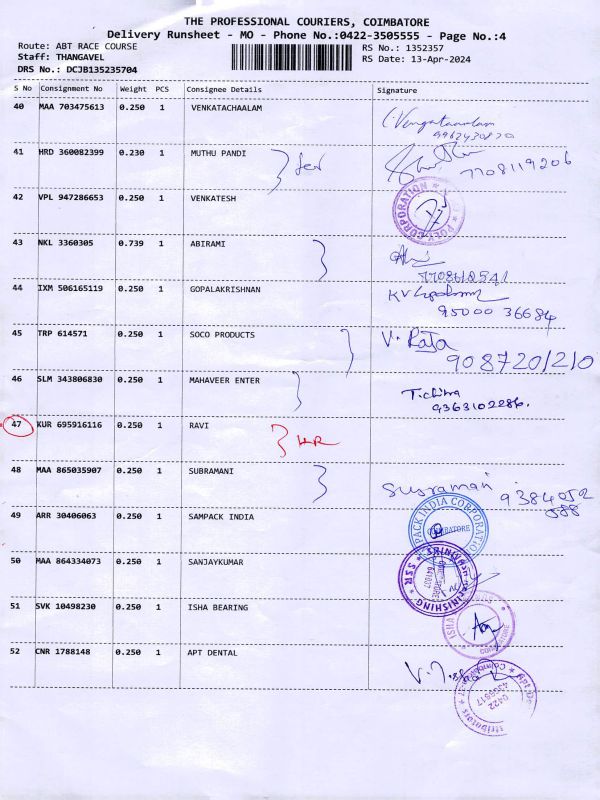 THE PROFESSIONAL COURIERS, COIMBATORE
Delivery Runsheet - MO - Phone No.:0422-3505555 - Page No.:4
Route: ABT RACE COURSE RS No.: 1352357
Staff: THANGAVEL RS Date: 13-Apr-2024
DRS No.: DCJB135235704
S No Consignment No Weight PCS Consignee Details Signature
40 MAA 703475613 0.250 1 VENKATACHAALAM
41 HRD 360082399 0.230 1 MUTHU PANDI 7708119206
42 VPL 947286653 0.250 1 VENKATESH
43 NKL 3360305 0.739 1 ABIRAMI
44 IXM 506165119 0.250 1 GOPALAKRISHNAN
95000 36684
45 TRP 614571 0.250 1 SOCO PRODUCTS V. Raja
9087201210
46 SLM 343806830 0.250 1 MAHAVEER ENTER T. Chitra
9363102286.
47 KUR 695916116 0.250 1 RAVI
48 MAA 865035907 0.250 1 SUBRAMANI Susraman 9384052
588
49 ARR 30406063 0.250 1 SAMPACK INDIA PACK INDIA CORPORATION COIMBATORE
50 MAA 864334073 0.250 1 SANJAYKUMAR
51 SVK 10498230 0.250 1 ISHA BEARING ISHA
52 CNR 1788148 0.250 1 APT DENTAL